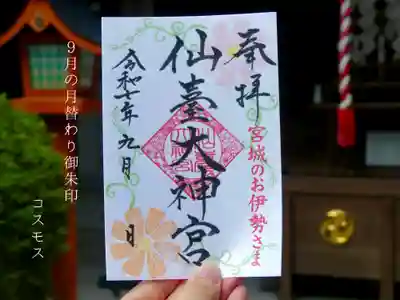 奉拝
宮城のお伊勢さま
仙臺大神宮
令和七年 九月 日
9月の月替わり御朱印
コスモス